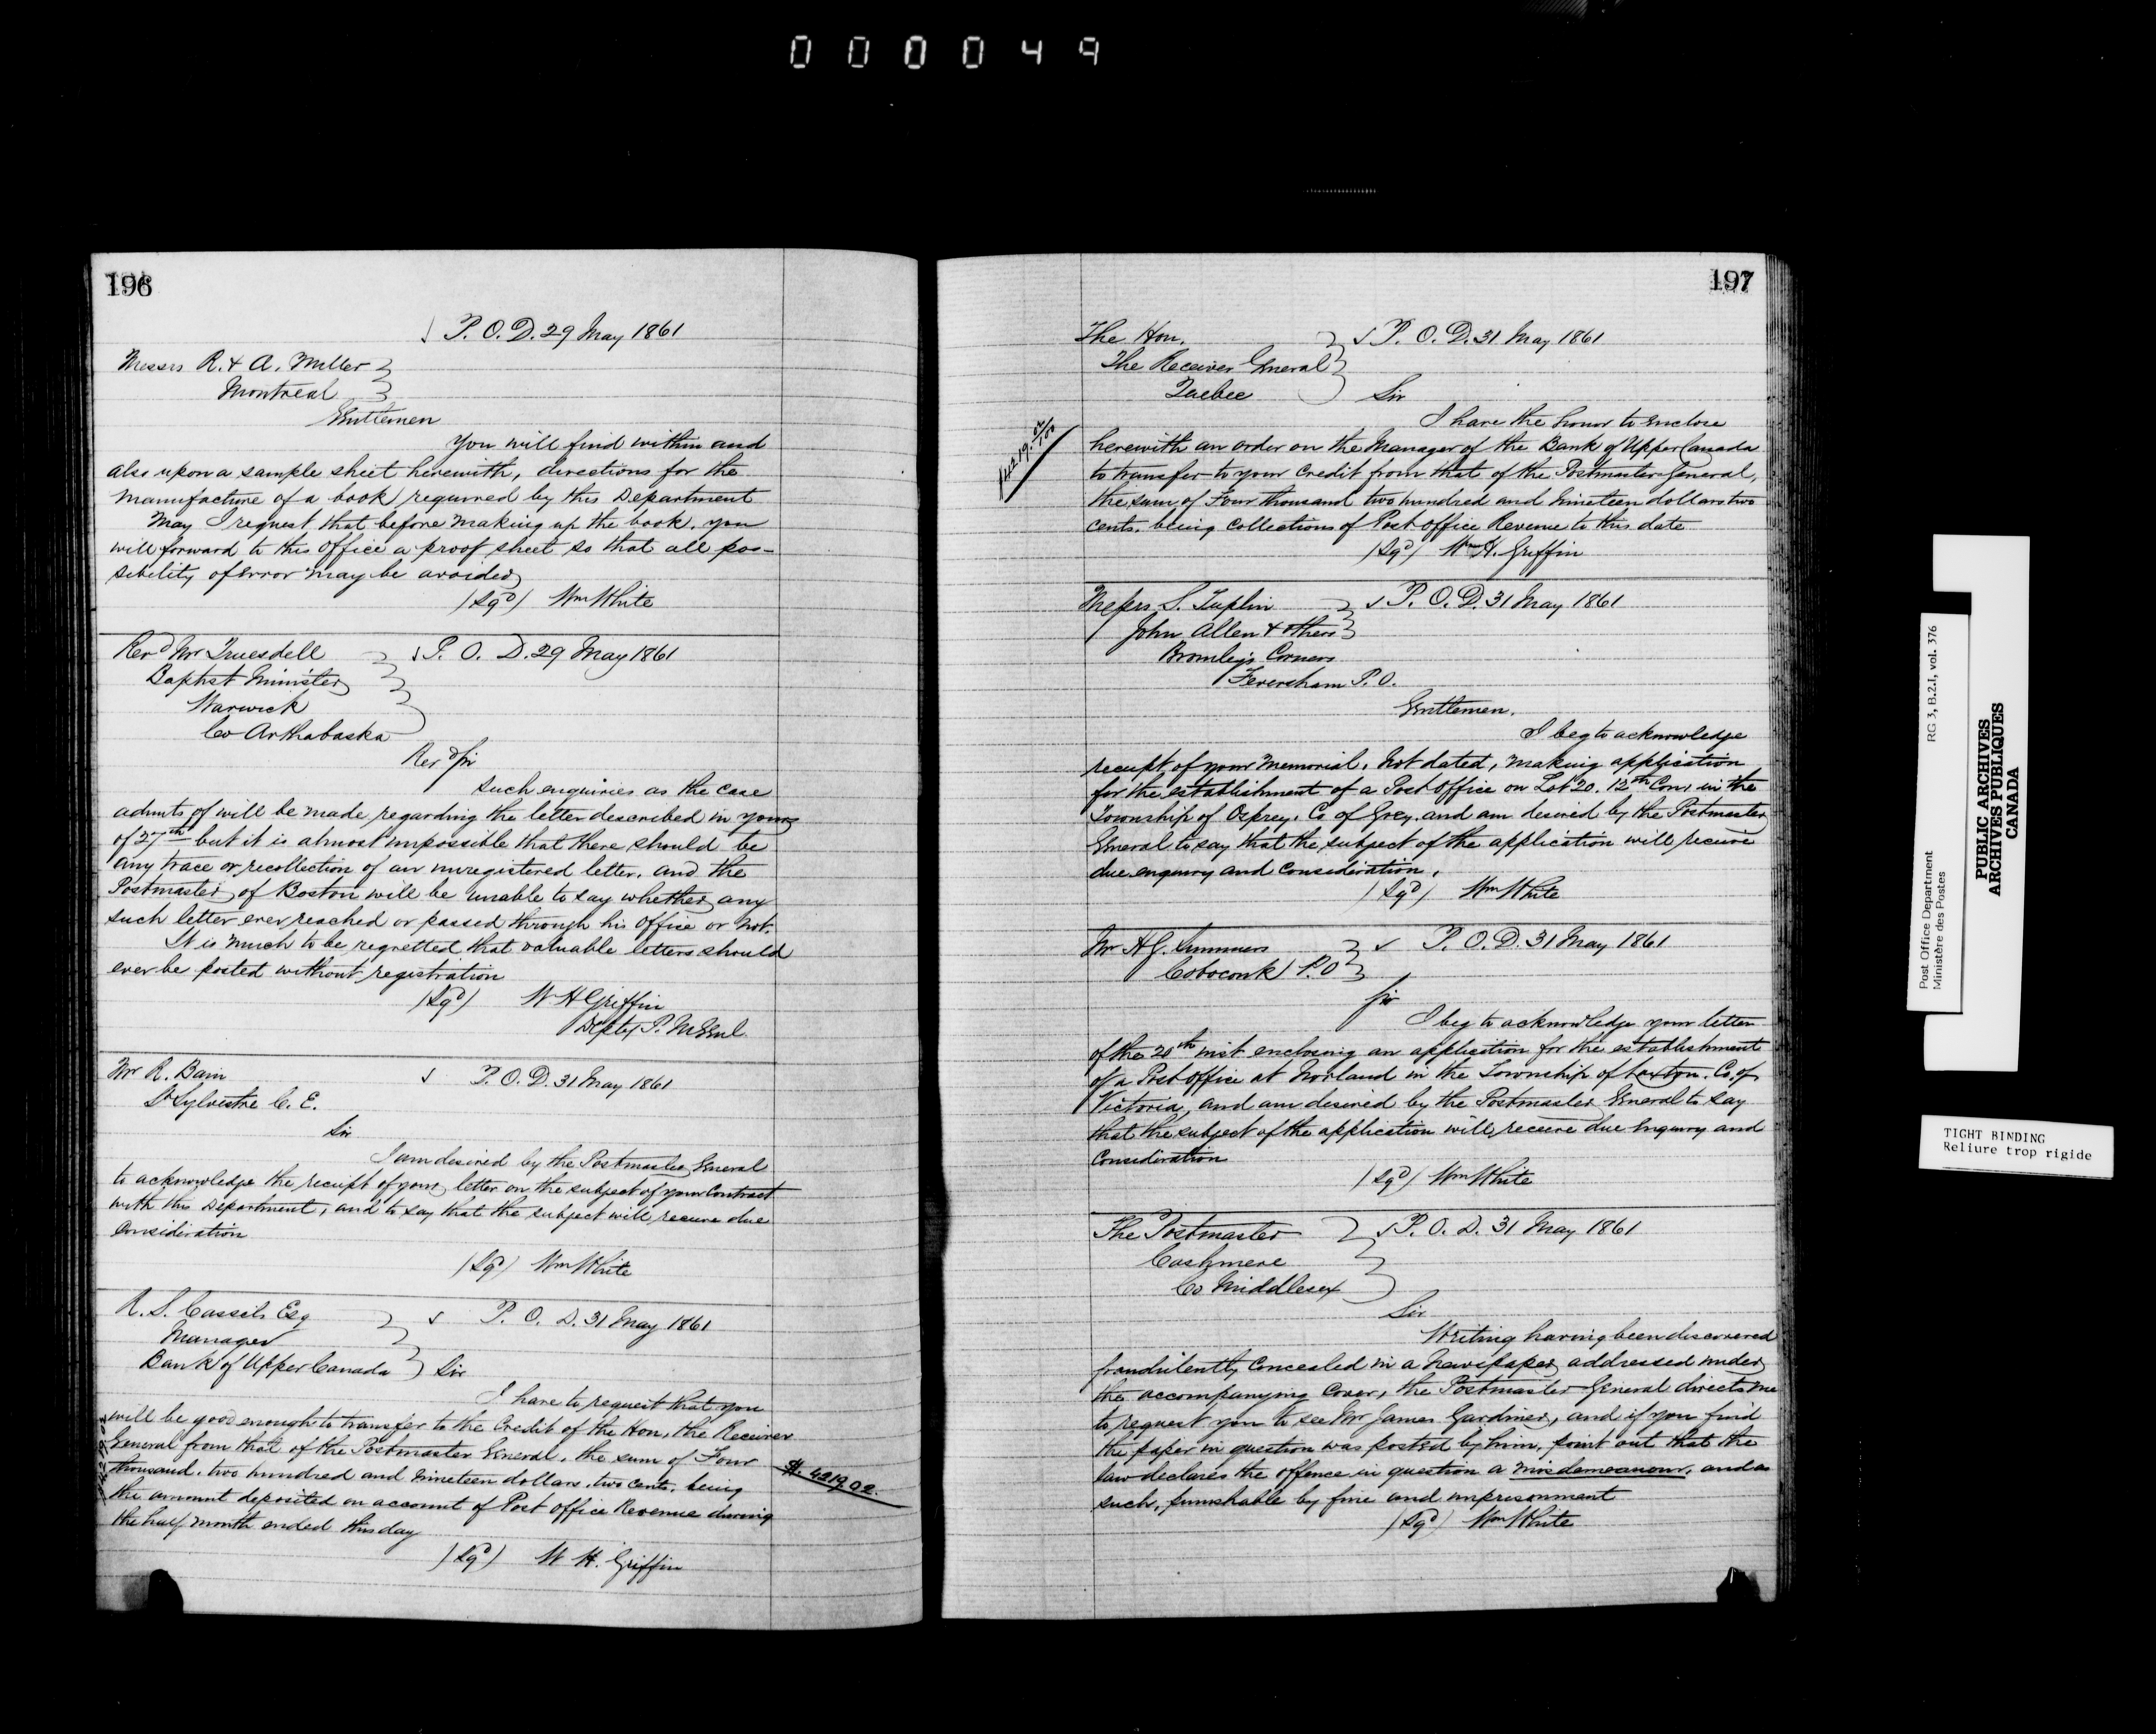 000049
196
P. O. D. 29 May 1861
Messrs R. & A. Miller
Montreal
Gentlemen
You will find within and
also upon a sample sheet herewith, directions for the
manufacture of a book required by this Department
May I request that before making up the book, you
will forward to this office a proof sheet so that all pos-
sibility of error may be avoided
(Sgd) Wm White
Revd Mr Truesdell
P. O. D. 29 May 1861
Baptist Minister
Warwick
Co Arthabaska
Revd Sir
Such enquiries as the case
admits of will be made regarding the letter described in yours
of 27th but it is almost impossible that there should be
any trace or recollection of an unregistered letter, and the
Postmaster of Boston will be unable to say whether any
such letter ever reached or passed through his office or not.
It is much to be regretted that valuable letters should
ever be posted without registration
(Sgd) W H Griffin
Depty P. M Genl
Mr R. Bain
P. O. D. 31 May 1861
St Sylvestre C. E.
Sir
I am desired by the Postmaster General
to acknowledge the receipt of your letter on the subject of your Contract
with this Department, and to say that the subject will receive due
Consideration
(Sgd) Wm White
R. S. Cassels Esq
P. O. D. 31 May 1861
Manager
Bank of Upper Canada
Sir
I have to request that you
will be good enough to transfer to the Credit of the Hon, the Receiver
General from that of the Postmaster General, the sum of Four
thousand, two hundred and nineteen dollars, two cents, being
$4219.02
the amount deposited on account of Post office Revenue during
the half month ended this day
(Sgd) W H. Griffin
197
The Hon.
P. O. D. 31 May 1861
The Receiver General
Quebec
Sir
I have the honor to enclose
herewith an order on the Manager of the Bank of Upper Canada
to transfer to your Credit from that of the Postmaster General,
the sum of Four thousand two hundred and nineteen dollars two
cents, being Collections of Post office Revenue to this date
(Sgd) Wm H. Griffin
Messrs S. Tuplin
P. O. D. 31 May 1861
John Allen & others
Bromley's Corners
Feversham P. O.
Gentlemen,
I beg to acknowledge
receipt of your Memorial, not dated, making application
for the establishment of a Post office on Lot 20. 12th Con, in the
Township of Osprey, Co of Grey, and am desired by the Postmaster
General to say that the subject of the application will receive
due enquiry and Consideration.
(Sgd) Wm White
Mr H G. Summers
P. O. D. 31 May 1861
Coboconk P. O
Sir
I beg to acknowledge your letter
of the 20th inst enclosing an application for the establishment
of a Post office at Norland in the Township of Laxton, Co. of
Victoria, and am desired by the Postmaster General to say
that the subject of the application will receive due Enquiry and
Consideration
(Sgd) Wm White
The Postmaster
P. O. D. 31 May 1861
Cashmere
Co Middlesex
Sir
Writing having been discovered
fraudulently Concealed in a Newspaper addressed under
the accompanying Cover, the Postmaster General directs me
to request you to see Mr James Gardiner, and if you find
the paper in question was posted by him, point out that the
law declares the offence in question a misdemeanour, and as
such, punishable by fine and imprisonment
(Sgd) Wm White
Post Office Department
RG 3, B.2.I, vol. 376
Ministère des Postes
PUBLIC ARCHIVES
ARCHIVES PUBLIQUES
CANADA
TIGHT BINDING
Reliure trop rigide